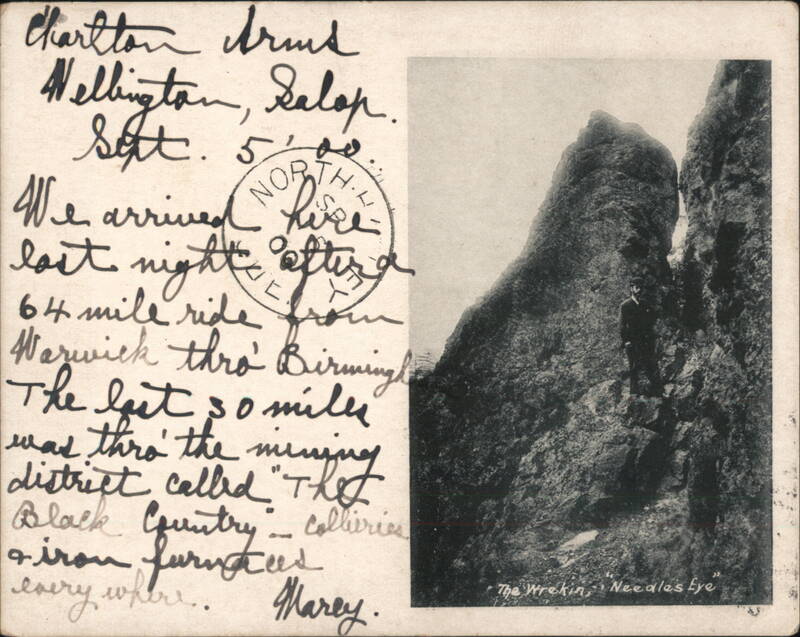 Charlton Arms
Wellington, Salop.
Sept. 5' 00.
We arrived here
last night after a
64 mile ride from
Warwick thro' Birmingh
The last 30 miles
was thro' the mining
district called "The
Black Country" – collieries
& iron furnaces
every where.
Marcy.
NORTH-H
SP
00
LEY
The Wrekin, - "Needles Eye"